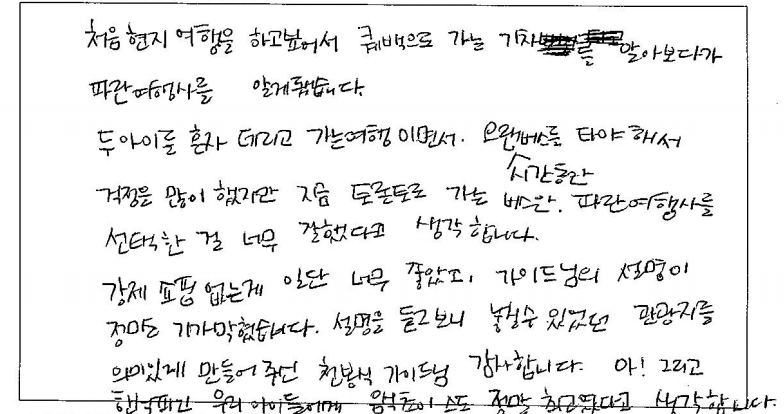 처음 현지 여행을 하고싶어서 퀘백으로 가는 기차를 알아보다가
파란여행사를 알게됐습니다.
두아이를 혼자 데리고 가는여행 이면서. 오랜 시간동안 버스를 타야 해서
걱정을 많이 했지만 지금 토론토로 가는 버스안. 파란여행사를
선택한 걸 너무 잘했다고 생각합니다.
강제 쇼핑 없는게 일단 너무 좋았고, 가이드님의 설명이
정말로 기가막혔습니다. 설명을 듣고보니 놓칠수 있었던 관광지를
의미있게 만들어 주신 천봉석 가이드님 감사합니다. 아! 그리고
우리 아이들에게 정말 최고였다고 생각합니다.